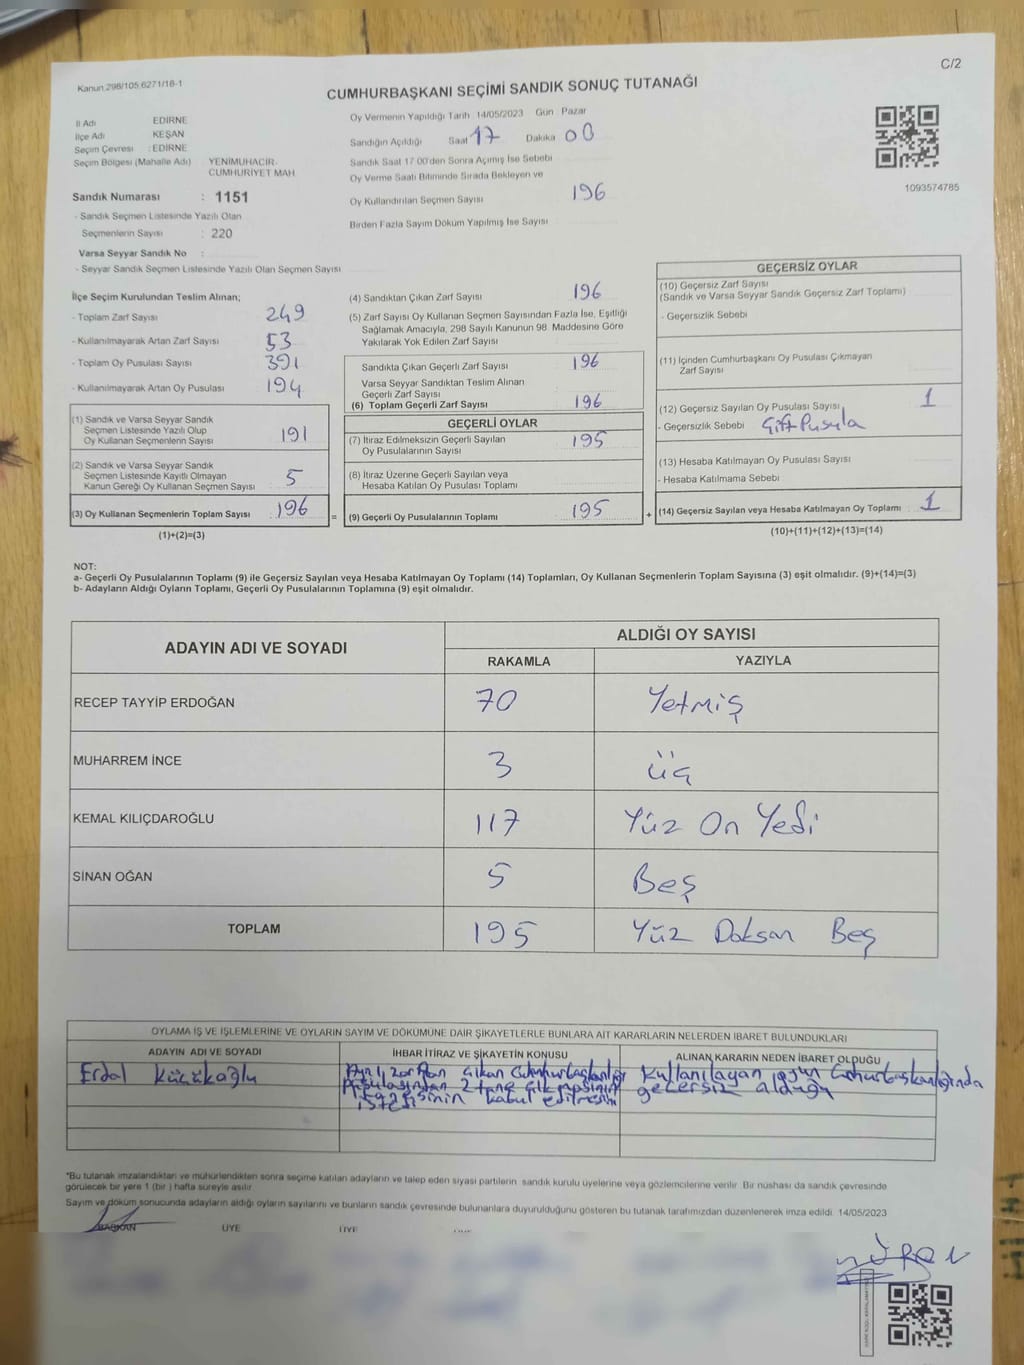 C/2
Kanun 298/105.6271/16-1
CUMHURBAŞKANI SEÇİMİ SANDIK SONUÇ TUTANAĞI
İl Adı EDİRNE
İlçe Adı KEŞAN
Seçim Çevresi : EDİRNE
Seçim Bölgesi (Mahalle Adı) YENİMUHACİR-CUMHURİYET MAH.
Sandık Numarası : 1151
- Sandık Seçmen Listesinde Yazılı Olan
Seçmenlerin Sayısı : 220
Varsa Seyyar Sandık No :
- Seyyar Sandık Seçmen Listesinde Yazılı Olan Seçmen Sayısı
Oy Vermenin Yapıldığı Tarih 14/05/2023 Gün Pazar
Sandığın Açıldığı Saat 17 Dakika 00
Sandık Saat 17.00'den Sonra Açımış İse Sebebi
Oy Verme Saati Bitiminde Sırada Bekleyen ve
Oy Kullandırılan Seçmen Sayısı 196
Birden Fazla Sayım Döküm Yapılmış İse Sayısı
1093574785
İlçe Seçim Kurulundan Teslim Alınan;
- Toplam Zarf Sayısı 249
- Kullanılmayarak Artan Zarf Sayısı 53
- Toplam Oy Pusulası Sayısı 391
- Kullanılmayarak Artan Oy Pusulası 194
(1) Sandık ve Varsa Seyyar Sandık
Seçmen Listesinde Yazılı Olup
Oy Kullanan Seçmenlerin Sayısı 191
(2) Sandık ve Varsa Seyyar Sandık
Seçmen Listesinde Kayıtlı Olmayan
Kanun Gereği Oy Kullanan Seçmen Sayısı 5
(3) Oy Kullanan Seçmenlerin Toplam Sayısı 196
=
(1)+(2)=(3)
(4) Sandıktan Çıkan Zarf Sayısı 196
(5) Zarf Sayısı Oy Kullanan Seçmen Sayısından Fazla İse, Eşitliği
Sağlamak Amacıyla, 298 Sayılı Kanunun 98. Maddesine Göre
Yakılarak Yok Edilen Zarf Sayısı
Sandıkta Çıkan Geçerli Zarf Sayısı 196
Varsa Seyyar Sandıktan Teslim Alınan
Geçerli Zarf Sayısı
(6) Toplam Geçerli Zarf Sayısı 196
GEÇERLİ OYLAR
(7) İtiraz Edilmeksizin Geçerli Sayılan
Oy Pusulalarının Sayısı 195
(8) İtiraz Üzerine Geçerli Sayılan veya
Hesaba Katılan Oy Pusulası Toplamı
(9) Geçerli Oy Pusulalarının Toplamı 195
+
GEÇERSİZ OYLAR
(10) Geçersiz Zarf Sayısı
(Sandık ve Varsa Seyyar Sandık Geçersiz Zarf Toplamı)
- Geçersizlik Sebebi
(11) İçinden Cumhurbaşkanı Oy Pusulası Çıkmayan
Zarf Sayısı
(12) Geçersiz Sayılan Oy Pusulası Sayısı 1
- Geçersizlik Sebebi Çift Pusula
(13) Hesaba Katılmayan Oy Pusulası Sayısı
- Hesaba Katılmama Sebebi
(14) Geçersiz Sayılan veya Hesaba Katılmayan Oy Toplamı : 1
(10)+(11)+(12)+(13)=(14)
NOT:
a- Geçerli Oy Pusulalarının Toplamı (9) ile Geçersiz Sayılan veya Hesaba Katılmayan Oy Toplamı (14) Toplamları, Oy Kullanan Seçmenlerin Toplam Sayısına (3) eşit olmalıdır. (9)+(14)=(3)
b- Adayların Aldığı Oyların Toplamı, Geçerli Oy Pusulalarının Toplamına (9) eşit olmalıdır.
ADAYIN ADI VE SOYADI
ALDIĞI OY SAYISI
RAKAMLA YAZIYLA
RECEP TAYYİP ERDOĞAN 70 Yetmiş
MUHARREM İNCE 3 üç
KEMAL KILIÇDAROĞLU 117 Yüz On Yedi
SİNAN OĞAN 5 Beş
TOPLAM 195 Yüz Doksan Beş
OYLAMA İŞ VE İŞLEMLERİNE VE OYLARIN SAYIM VE DÖKÜMÜNE DAİR ŞİKAYETLERLE BUNLARA AİT KARARLARIN NELERDEN İBARET BULUNDUKLARI
ADAYIN ADI VE SOYADI İHBAR İTİRAZ VE ŞİKAYETİN KONUSU ALINAN KARARIN NEDEN İBARET OLDUĞU
Erdal Küçükoğlu
Aynı zarftan çıkan Cumhurbaşkanlığı
Pusulasından 2 tane çıkmasının
kabul edilmesini
isteği
Kullanılayan oyun Cumhurbaşkanlığında
geçersiz olduğu
*Bu tutanak imzalandıktan ve mühürlendikten sonra seçime katılan adayların ve talep eden siyasi partilerin sandık kurulu üyelerine veya gözlemcilerine verilir. Bir nüshası da sandık çevresinde
görülecek bir yere 1 (bir) hafta süreyle asılır.
Sayım ve döküm sonucunda adayların aldığı oyların sayılarını ve bunların sandık çevresinde bulunanlara duyurulduğunu gösteren bu tutanak tarafımızdan düzenlenerek imza edildi. 14/05/2023
BAŞKAN ÜYE ÜYE